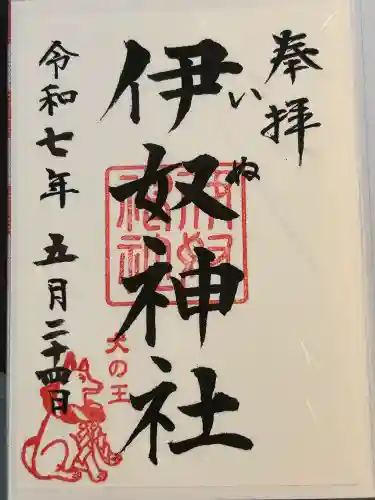 奉拝
伊奴神社
いぬ
犬の王
令和七年 五月二十四日